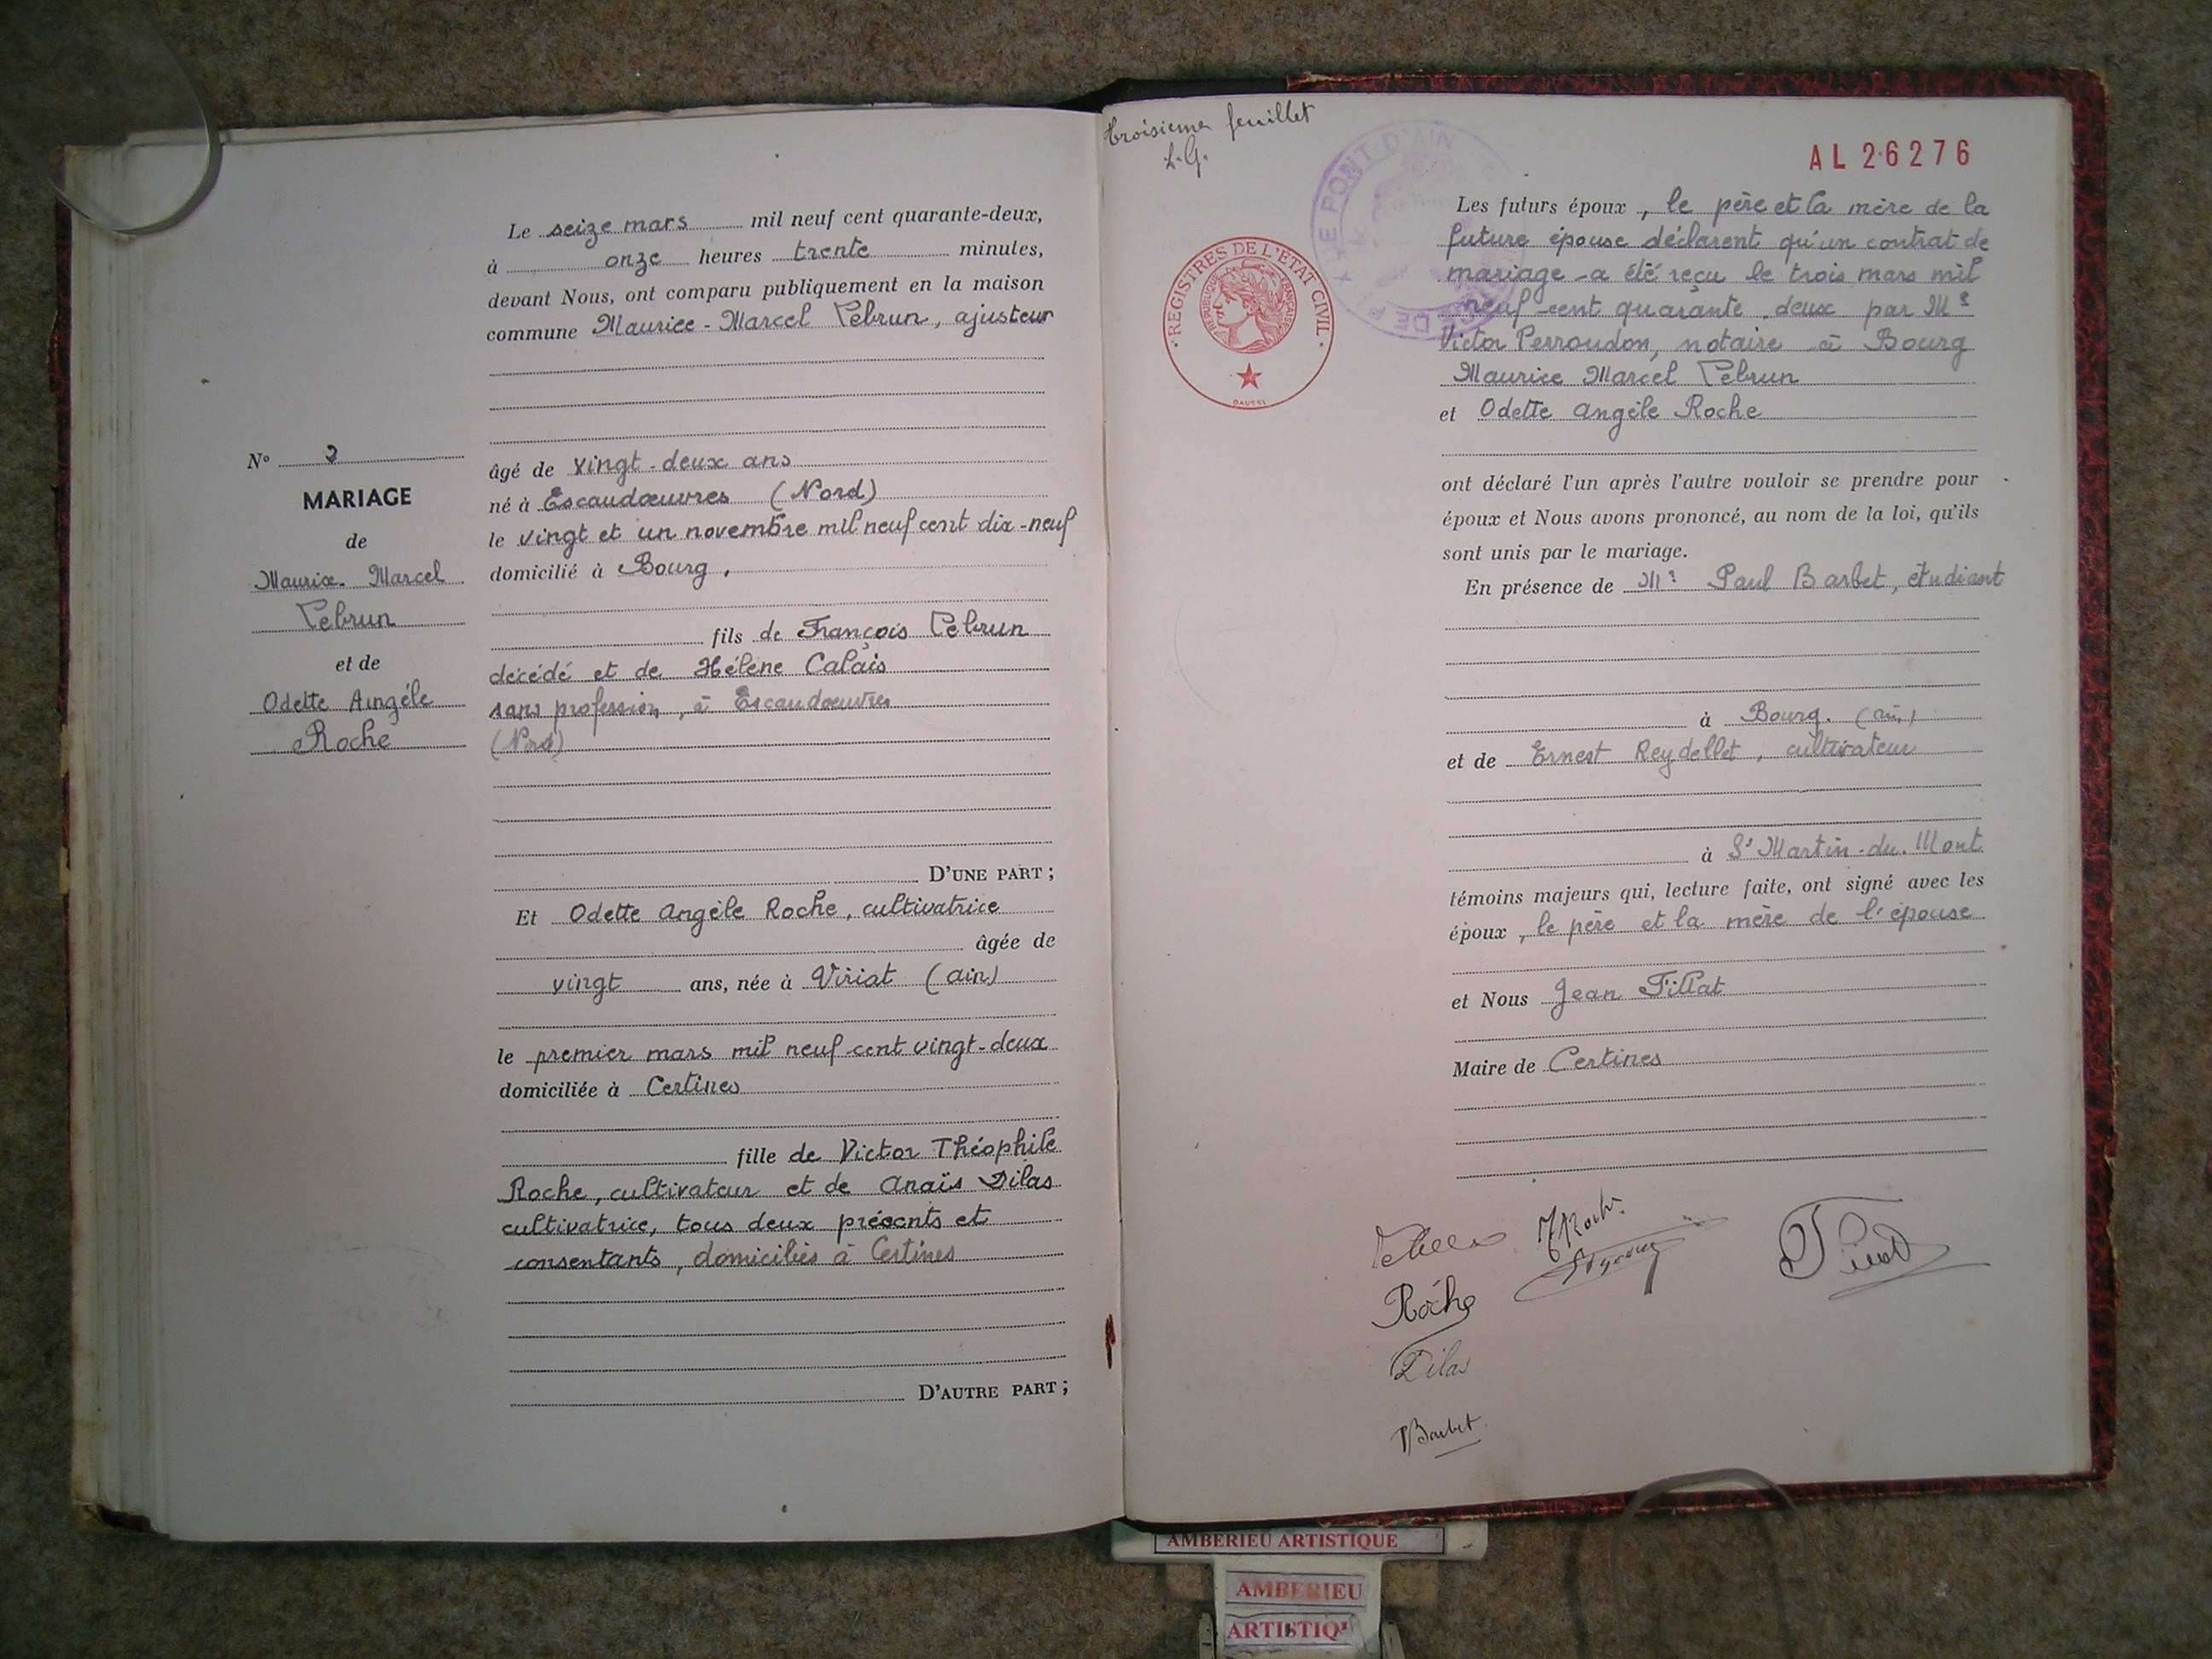 Le seize mars mil neuf cent quarante-deux,
à onze heures trente minutes,
devant Nous, ont comparu publiquement en la maison
commune Maurice-Marcel Lebrun, ajusteur
N° 2
MARIAGE
de
Maurice. Marcel
Lebrun
et de
Odette Angèle
Roche
âgé de vingt-deux ans
né à Escaudœuvres (Nord)
le vingt et un novembre mil neuf cent dix-neuf
domicilié à Bourg,
fils de François Lebrun
décédé et de Hélène Calais
sans profession, à Escaudœuvres
(Nord)
D'UNE PART;
Et Odette Angèle Roche, cultivatrice
âgée de
vingt ans, née à Viriat (Ain)
le premier mars mil neuf cent vingt-deux
domiciliée à Certines
fille de Victor Théophile
Roche, cultivateur et de Anaïs Dilas
cultivatrice, tous deux présents et
consentants, domiciliés à Certines
D'AUTRE PART;
troisième feuillet
L.G.
PONT D'AIN
REGISTRES DE L'ETAT CIVIL
REPUBLIQUE FRANÇAISE
AL 26276
Les futurs époux, le père et la mère de la
future épouse déclarent qu'un contrat de
mariage a été reçu le trois mars mil
neuf cent quarante deux par Me
Victor Perroudon, notaire à Bourg
Maurice Marcel Lebrun
et Odette Angèle Roche
ont déclaré l'un après l'autre vouloir se prendre pour
époux et Nous avons prononcé, au nom de la loi, qu'ils
sont unis par le mariage.
En présence de Mr Paul Barbet, étudiant
à Bourg. (Ain)
et de Ernest Reydellet, cultivateur
à St Martin-du-Mont
témoins majeurs qui, lecture faite, ont signé avec les
époux, le père et la mère de l'épouse
et Nous Jean Tillat
Maire de Certines
Roche
Roche
Dilas
Barbet
AMBERIEU ARTISTIQUE
AMBERIEU
ARTISTIQ